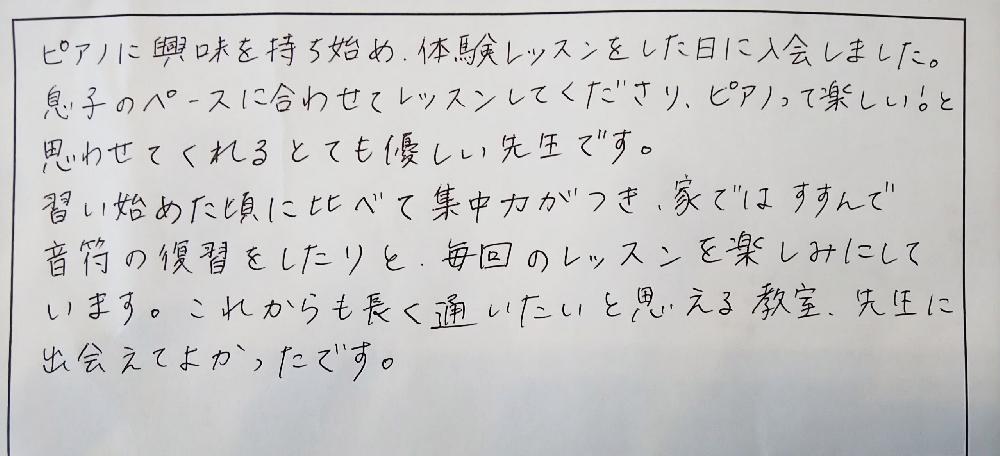 ピアノに興味を持ち始め、体験レッスンをした日に入会しました。
息子のペースに合わせてレッスンしてくださり、ピアノって楽しい!と
思わせてくれるとても優しい先生です。
習い始めた頃に比べて集中力がつき、家ではすすんで
音符の復習をしたりと、毎回のレッスンを楽しみにして
います。これからも長く通いたいと思える教室、先生に
出会えてよかったです。